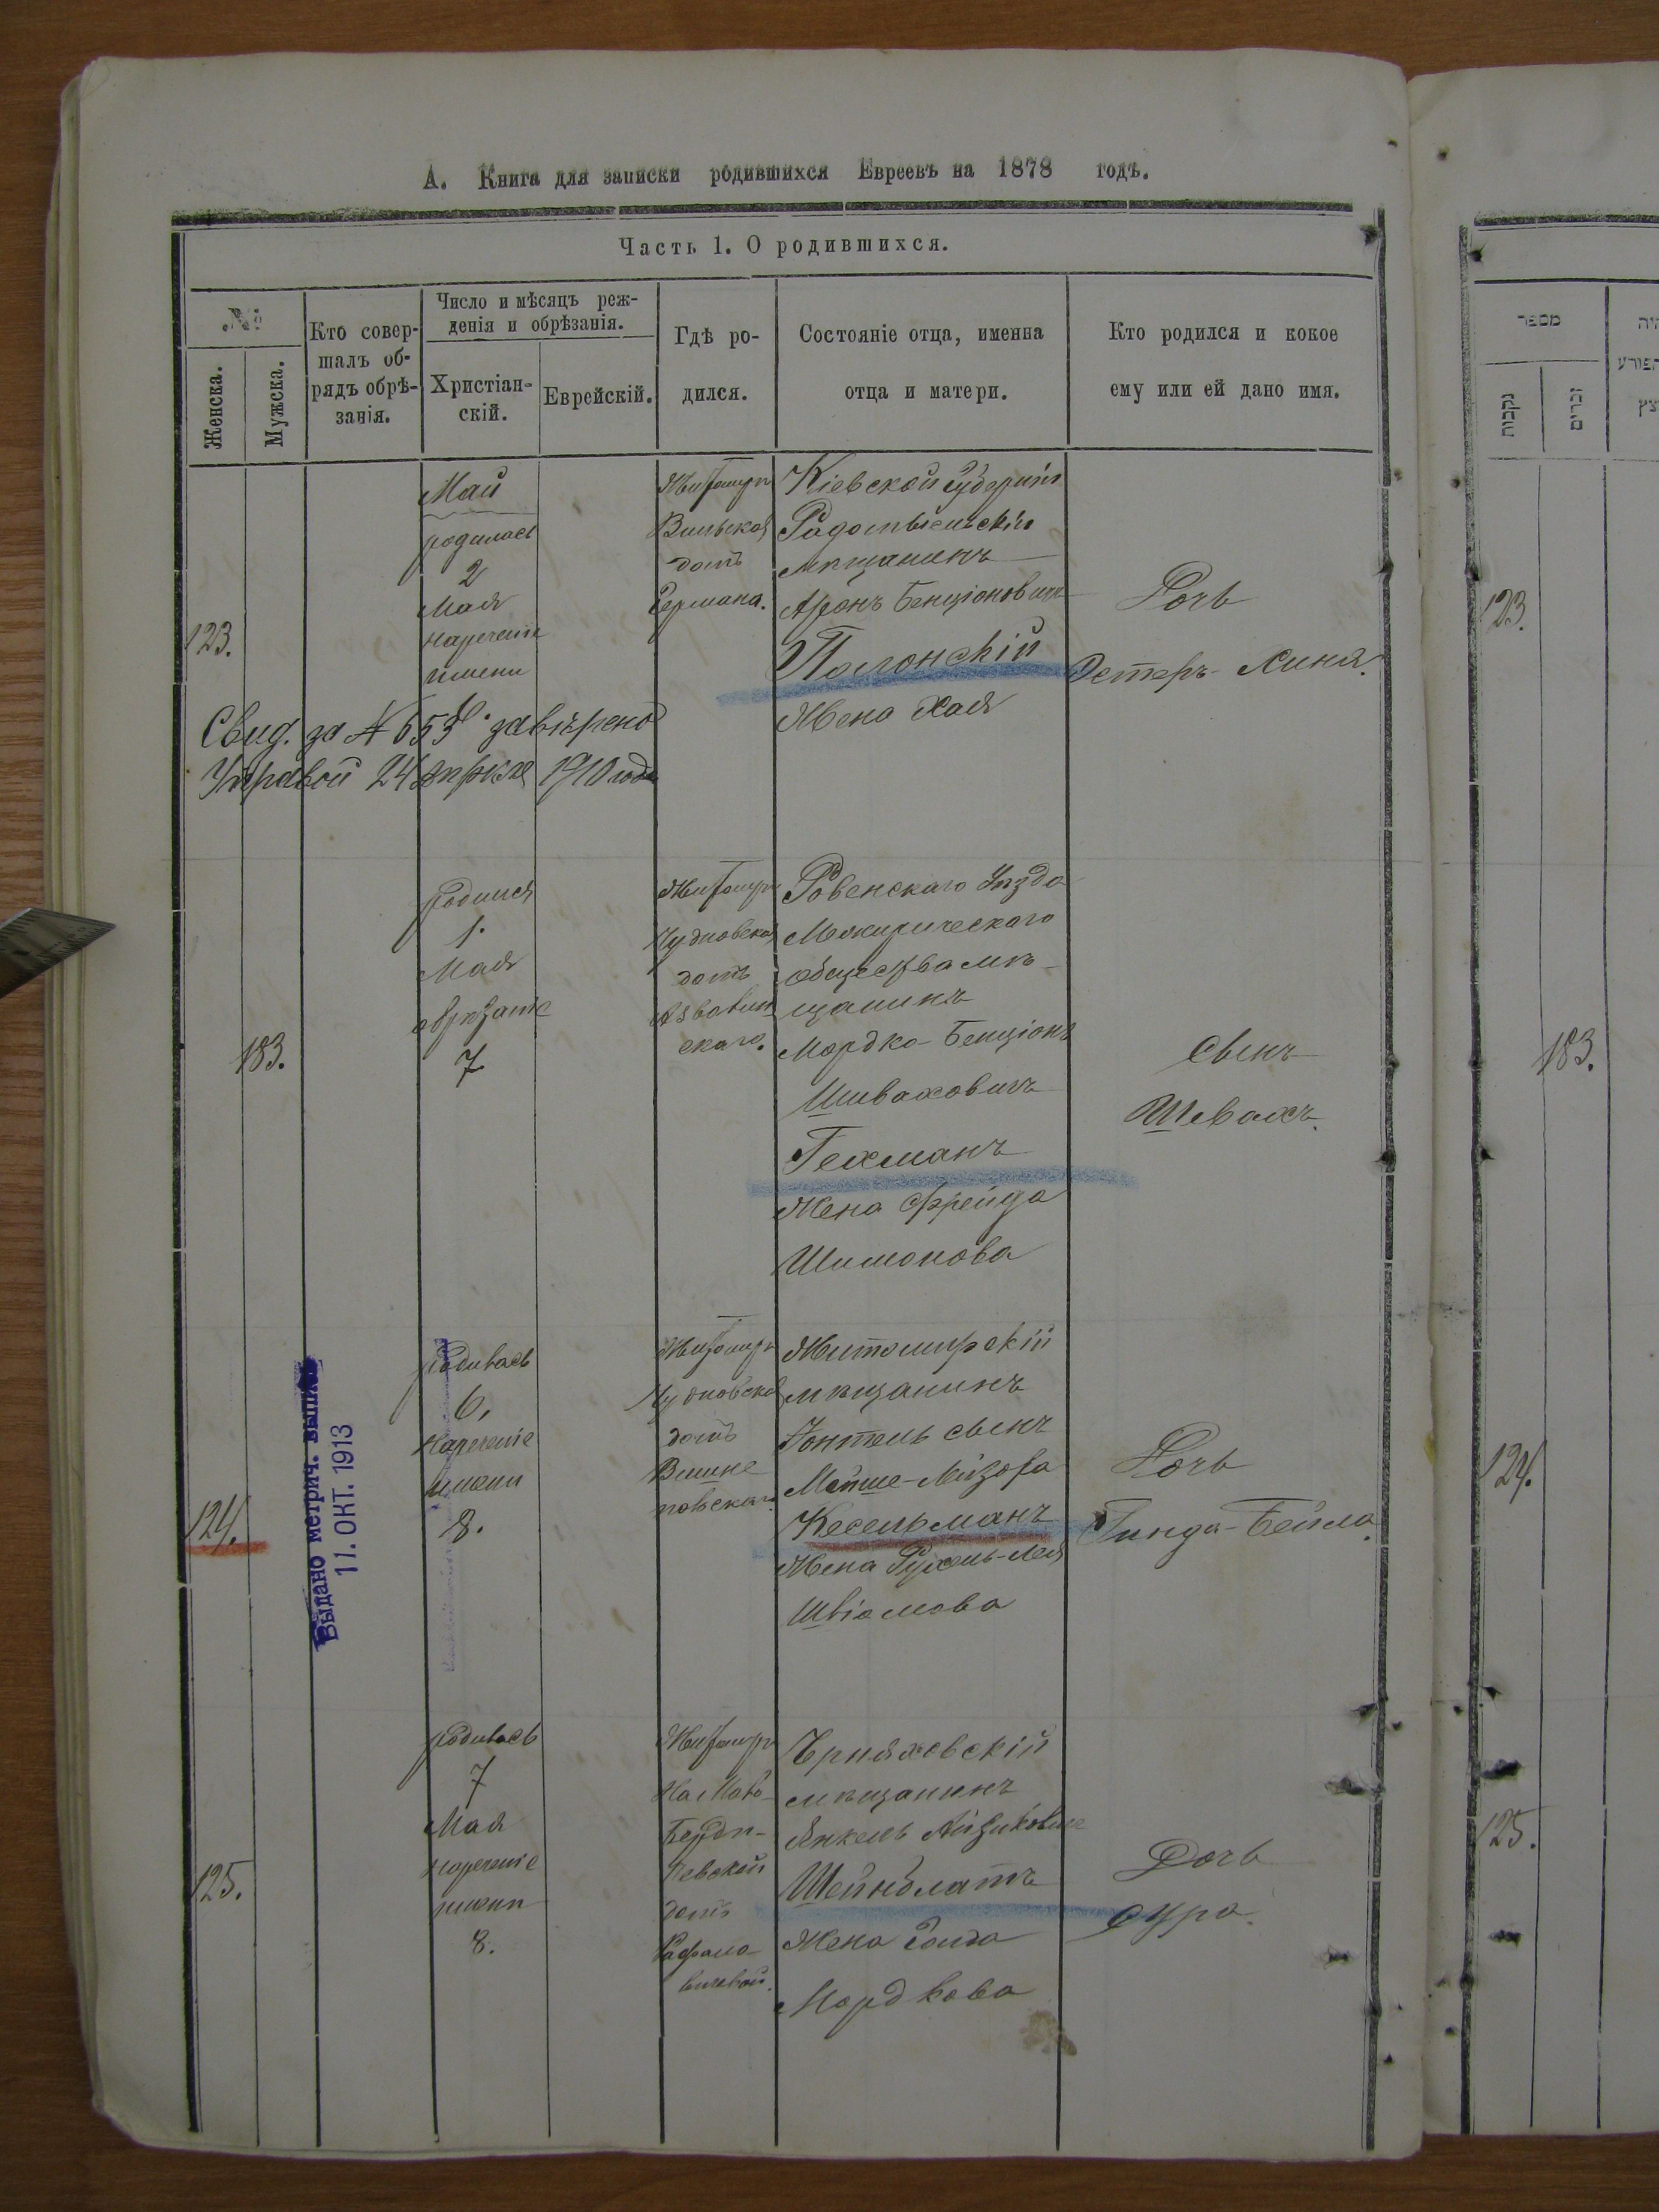 А. Книга для записки родившихся Евреевъ на 1878 годъ.
Часть 1. О родившихся.
№
Женска.
Мужска.
Кто совер-
шалъ об-
рядъ обрѣ-
занія.
Число и мѣсяцъ реж-
денія и обрѣзанія.
Христіан-
скій.
Еврейскій.
Гдѣ ро-
дился.
Состояніе отца, именна
отца и матери.
Кто родился и кокое
ему или ей дано имя.
123.
Май
родилась
2
Мая
наречение
имени
Житомиръ
Вильская
домъ
Германа.
Кіевской Губерніи
Радомысльскій
мѣщанинъ
Аронъ Бенціоновичъ
Полонскій
Жена Хая
Дочь
Эстеръ-Хина.
Свид. за № 653 завѣрено
Управой 24 апрѣля 1910 года
183.
родился
1.
Мая
обрѣзаніе
7
Житомиръ
Чудновская
домъ
скаго.
Ровенскаго Уѣзда
Межирическаго
общества мѣ-
щанинъ
Мордко-Бенціонъ
Шиваховичъ
Гехманъ
Жена Фрейда
Шимонова
Сынъ
Шевахъ.
124.
Выдано метрич. выпись
11. ОКТ. 1913
родилась
6.
Наречение
имени
8.
Житомиръ
Чудновская
домъ
Вишне
повскаго
Житомирскій
мѣщанинъ
Іонтель сынъ
Мойше-Лейзора
Кесельманъ
Жена Рухель-Лея
Шліомова
Дочь
Гинда-Бейла.
125.
родилась
7
Мая
наречение
имени
8.
Житомиръ
На Мало-
Берди-
чевской
домъ
Рафало
вичевой.
Черняховскій
мѣщанинъ
Янкель Айзиковичъ
Шейнблатъ
Жена Голда
Мордкова
Дочь
Сура.
מספר
נקבות
זכרים
123.
183.
124.
125.